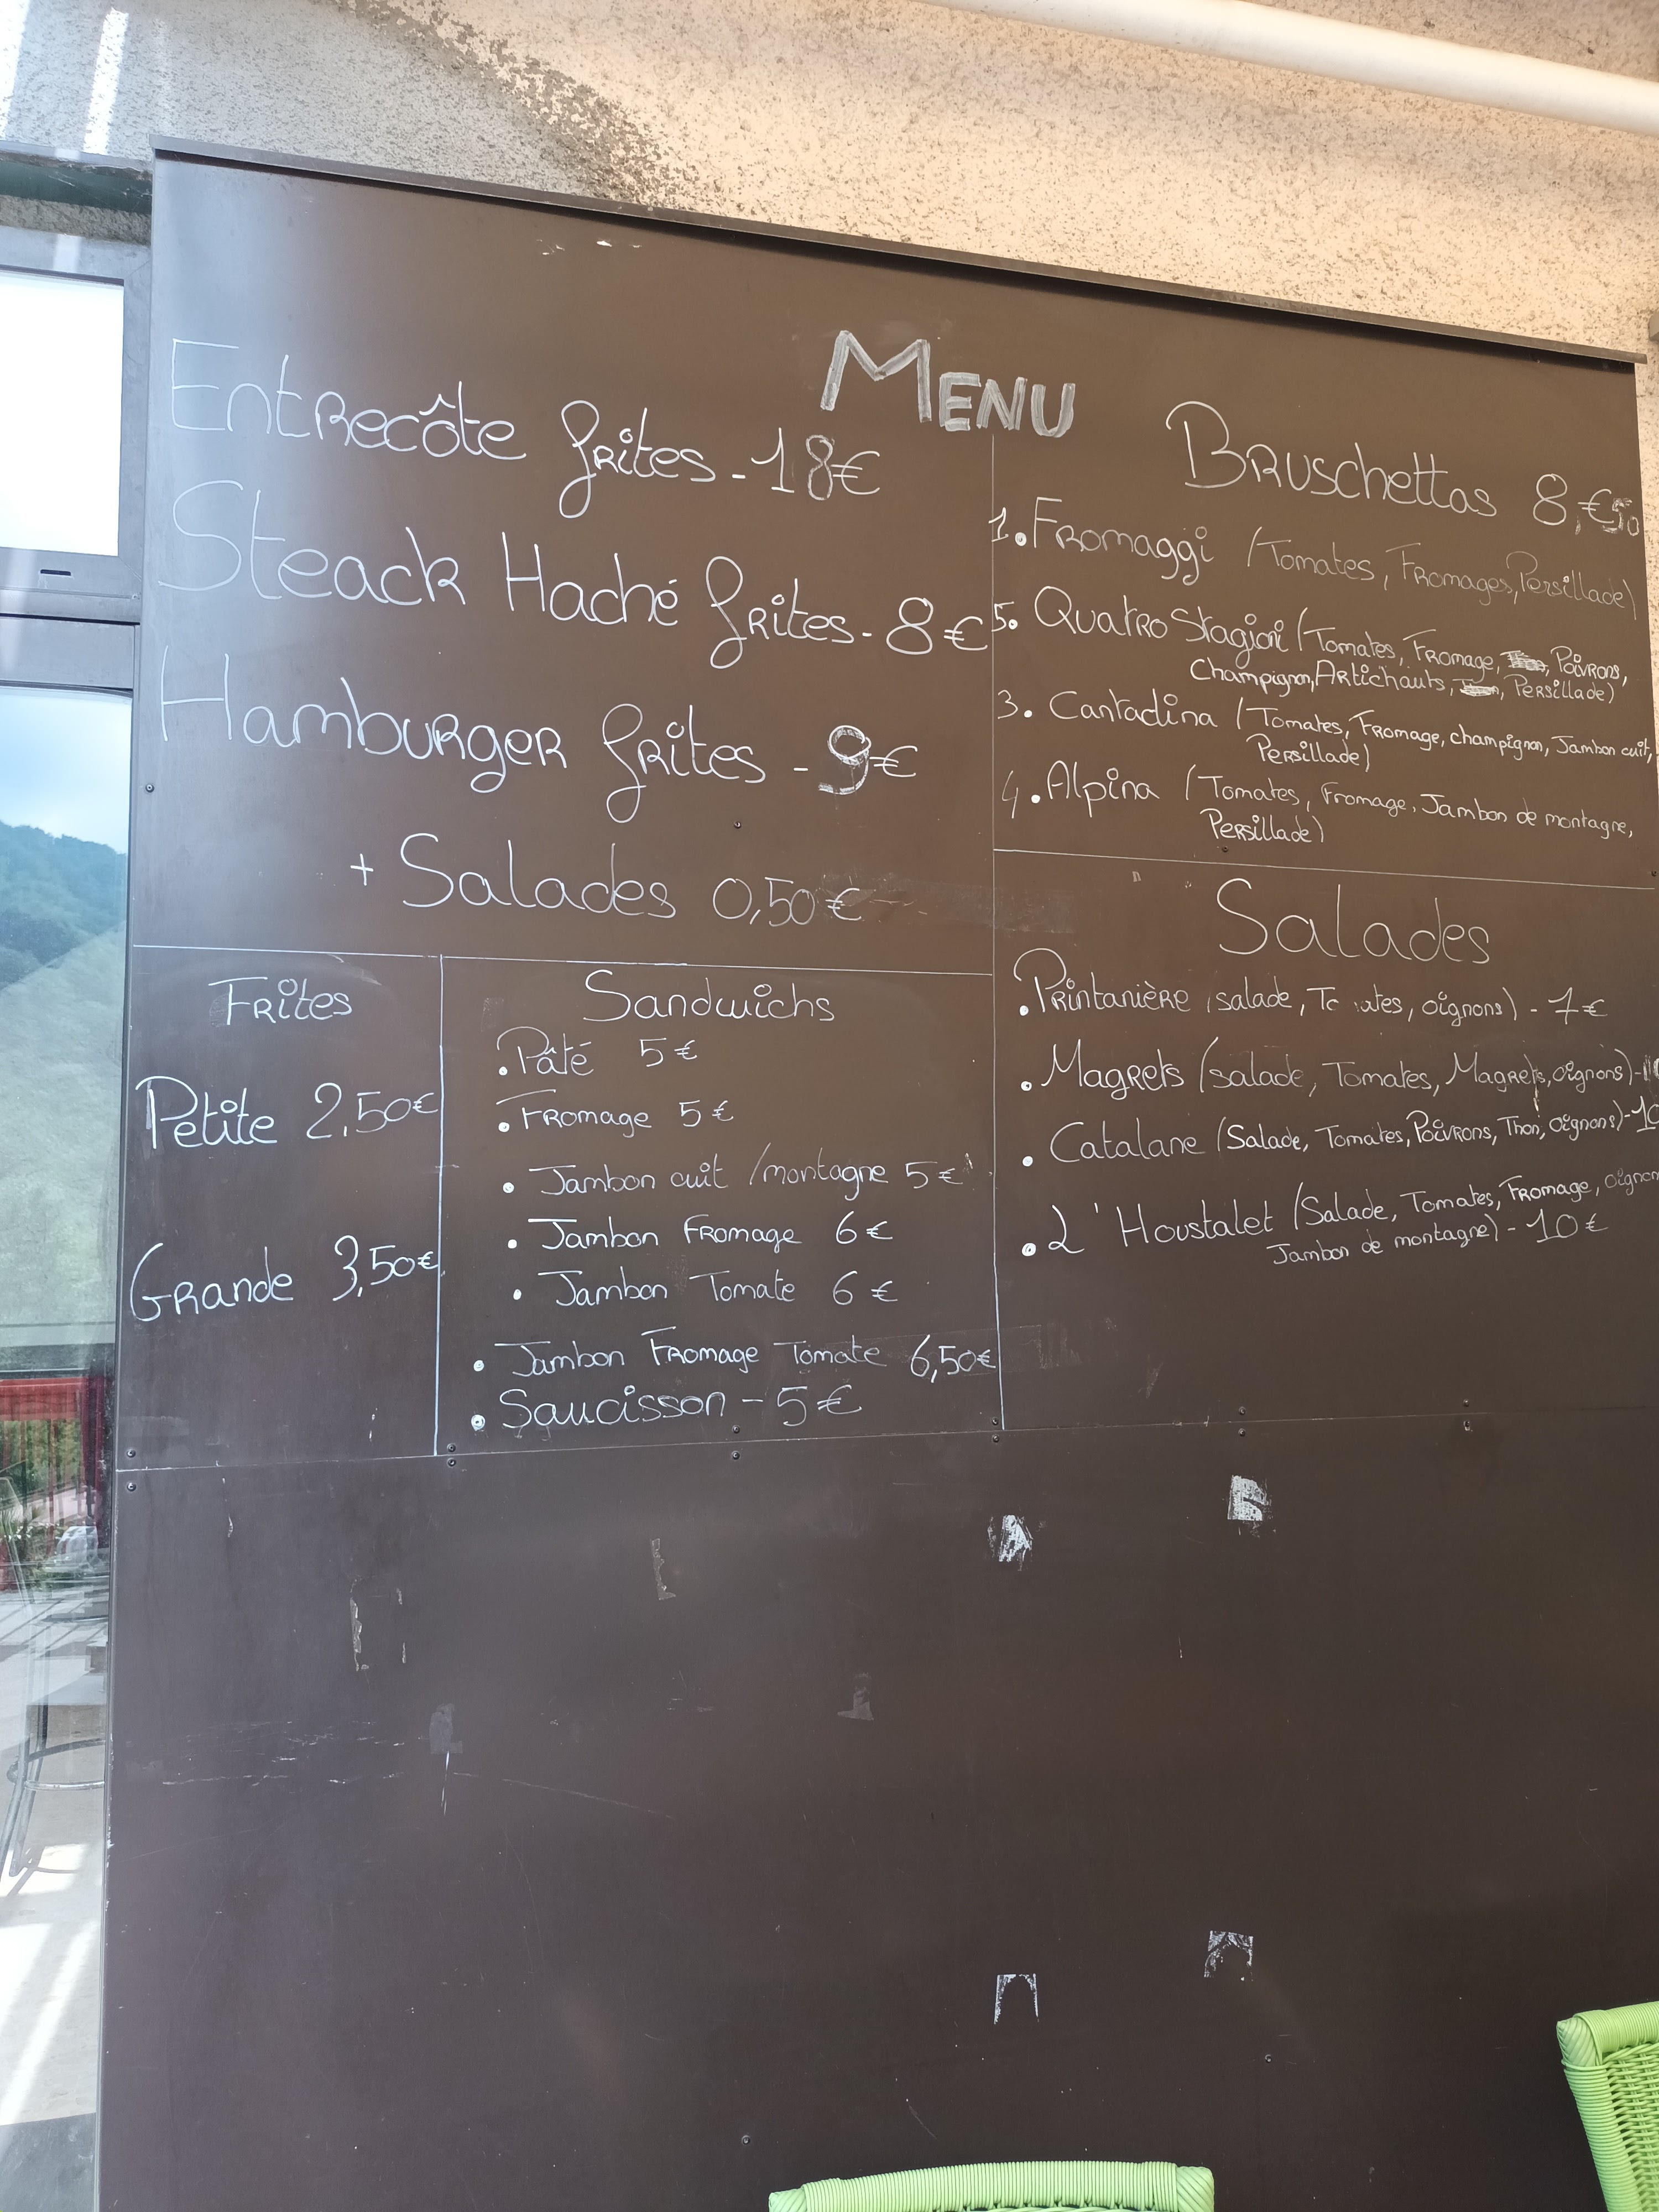 MENU
Entrecôte frites - 18€
Steack Haché frites - 8€
Hamburger frites - 9€
+ Salades 0,50€
Bruschettas 8,€50
1. Fromaggi (Tomates, Fromages, Persillade)
5. Quatro Stagioni (Tomates, Fromage, Poivrons,
Champignon, Artichauts, Persillade)
3. Cantadina (Tomates, Fromage, champignon, Jambon cuit,
Persillade)
4. Alpina (Tomates, Fromage, Jambon de montagne,
Persillade)
Frites
Petite 2,50€
Grande 3,50€
Sandwichs
. Pâté 5€
. Fromage 5€
. Jambon cuit /montagne 5€
. Jambon Fromage 6€
. Jambon Tomate 6€
. Jambon Fromage Tomate 6,50€
. Saucisson - 5€
Salades
. Printanière (salade, oignons) - 7€
. Magrets (salade, Tomates, Magrets, oignons) -
. Catalane (Salade, Tomates, Poivrons, Thon, oignons) - 10
. L'Houstalet (Salade, Tomates, Fromage, oignon
Jambon de montagne) - 10€